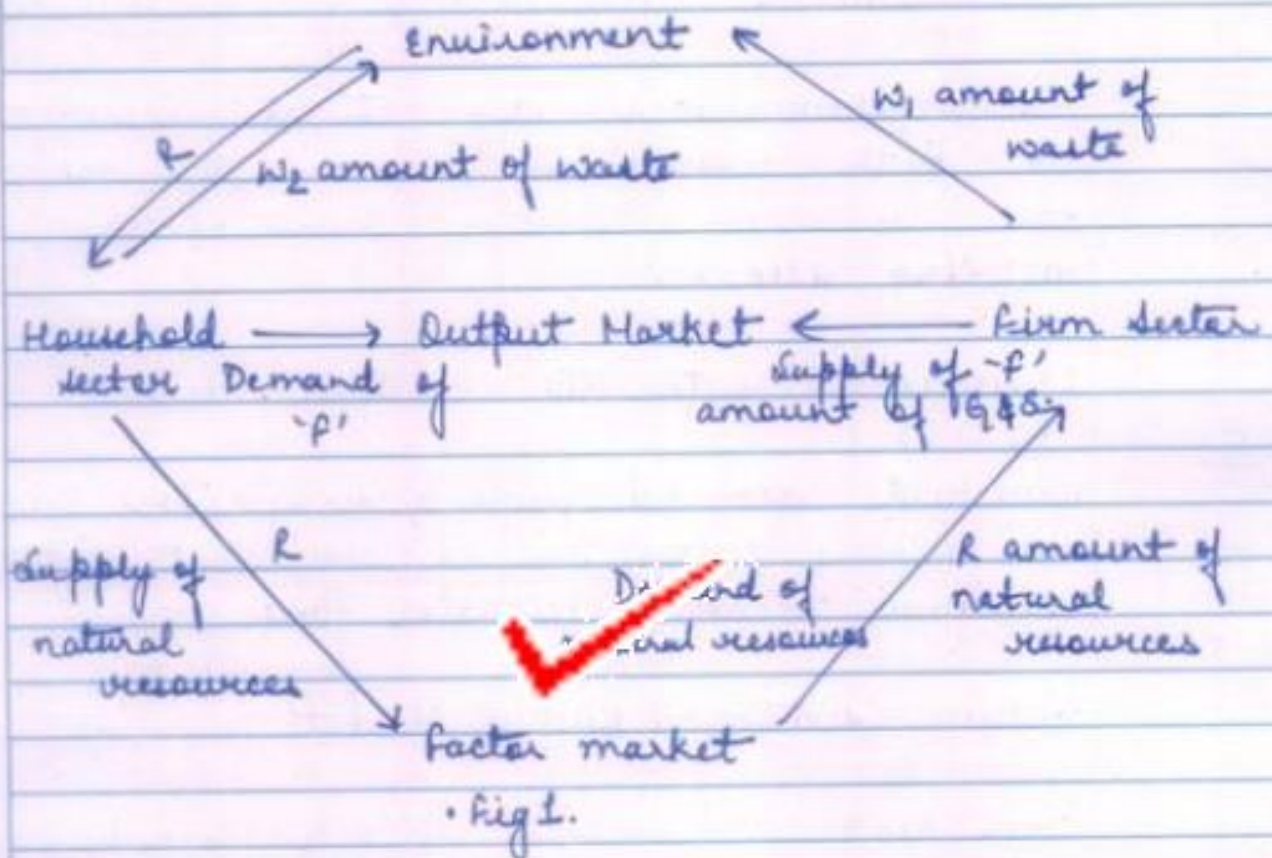 Environment
R
W2 amount of waste
W1 amount of
waste
Household → Output Market ← Firm Sector
Sector Demand of
'f'
Supply of 'f'
amount of G&S
Supply of
natural
resources
R
Demand of
resources
R amount of
natural
resources
Factor market
• Fig 1.